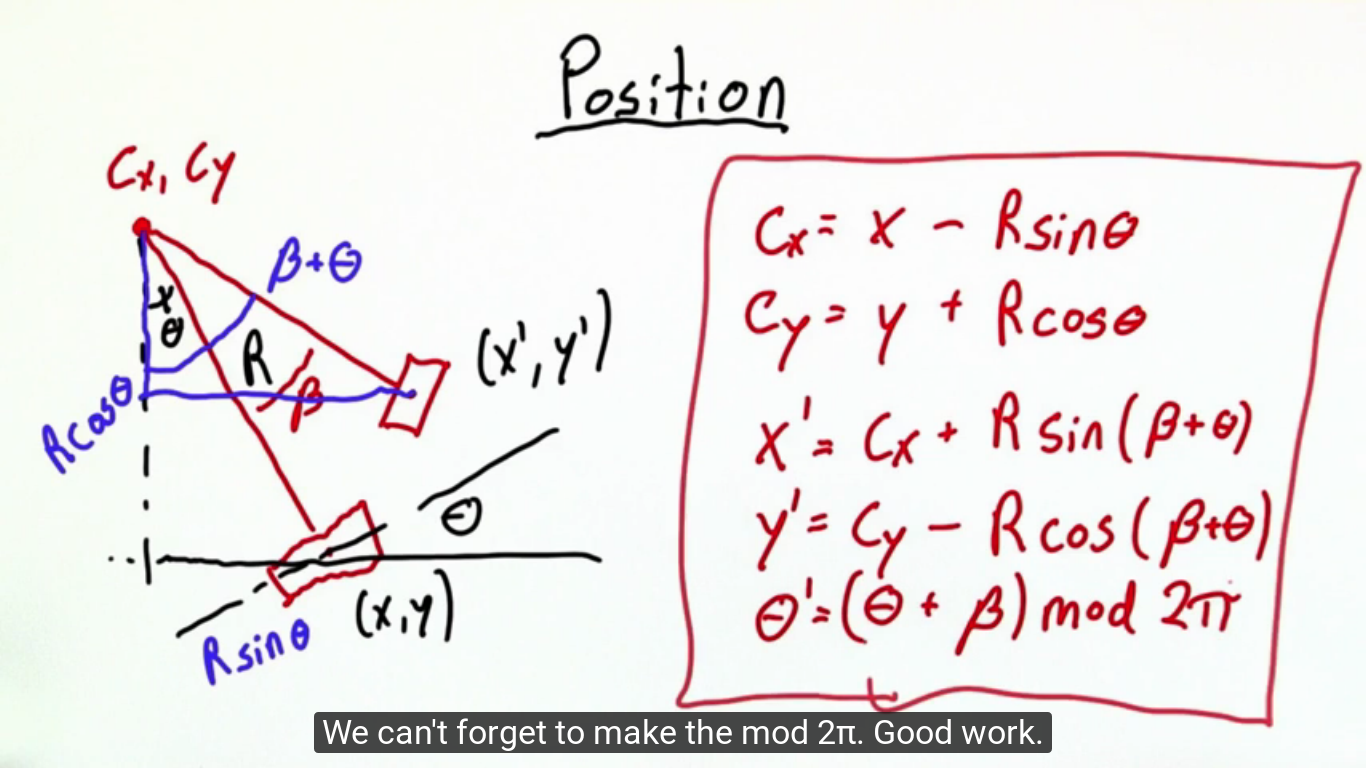 Position
Cx, Cy
β+θ
x
θ
R
β
(x', y')
Rcosθ
θ
(x,y)
Rsinθ
Cx = x - Rsinθ
Cy = y + Rcosθ
x' = Cx + R sin(β+θ)
y' = Cy - R cos(β+θ)
θ' = (θ + β) mod 2π
We can't forget to make the mod 2π. Good work.